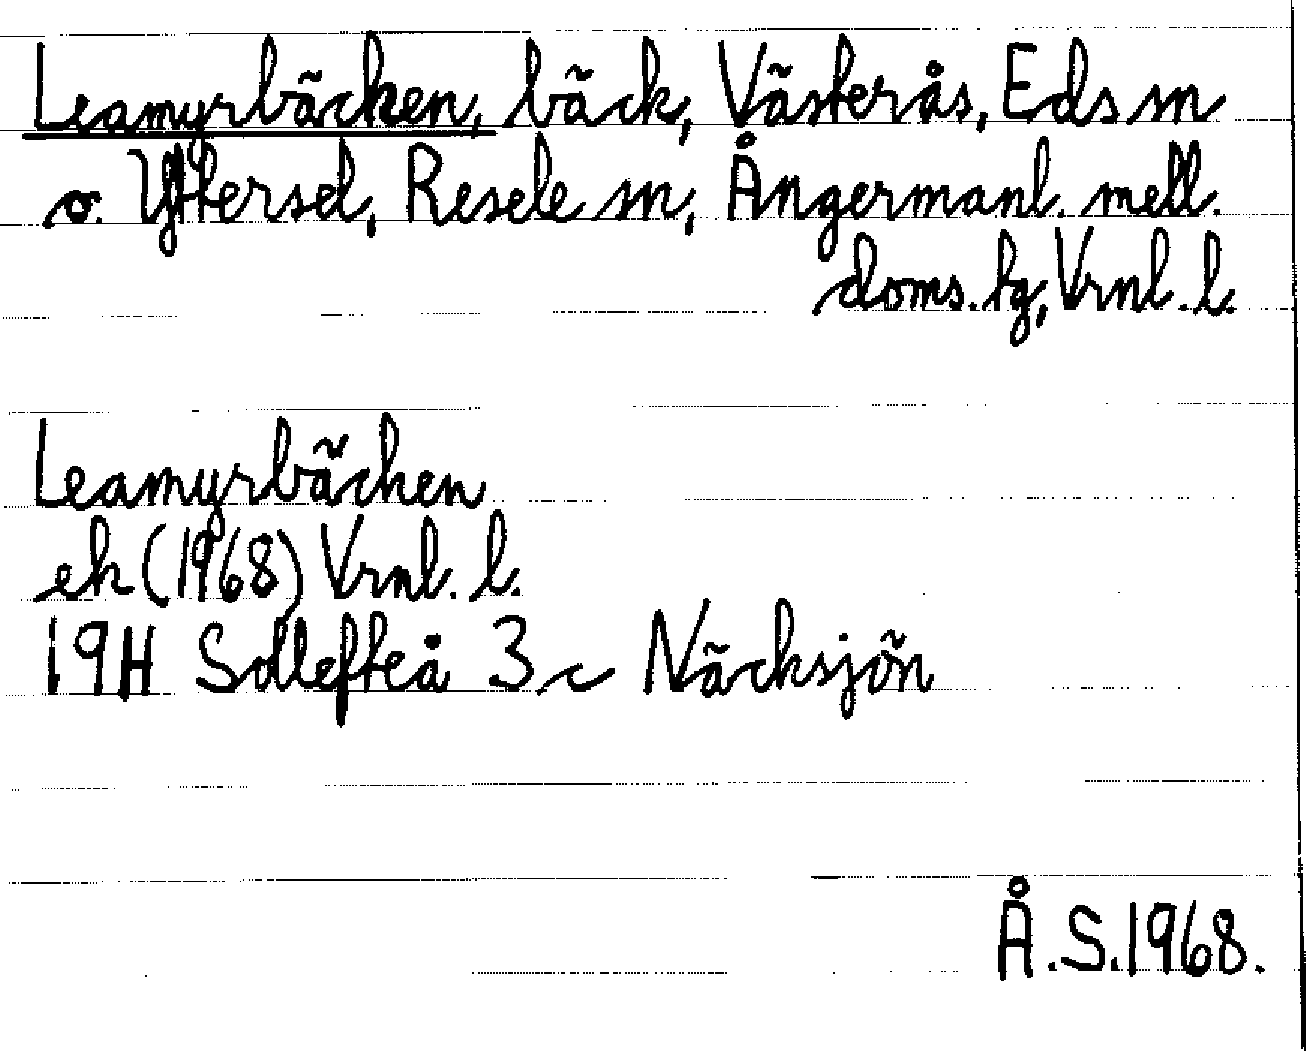 Leamyrbäcken, bäck, Västerås, Eds sn
o. Yttersel, Resele sn, Ångermanl. mell.
doms. hg, Vrnl. l.
Leamyrbäcken
ek (1968) Vrnl. l.
19H Sollefteå 3 c Näcksjön
Å.S. 1968.